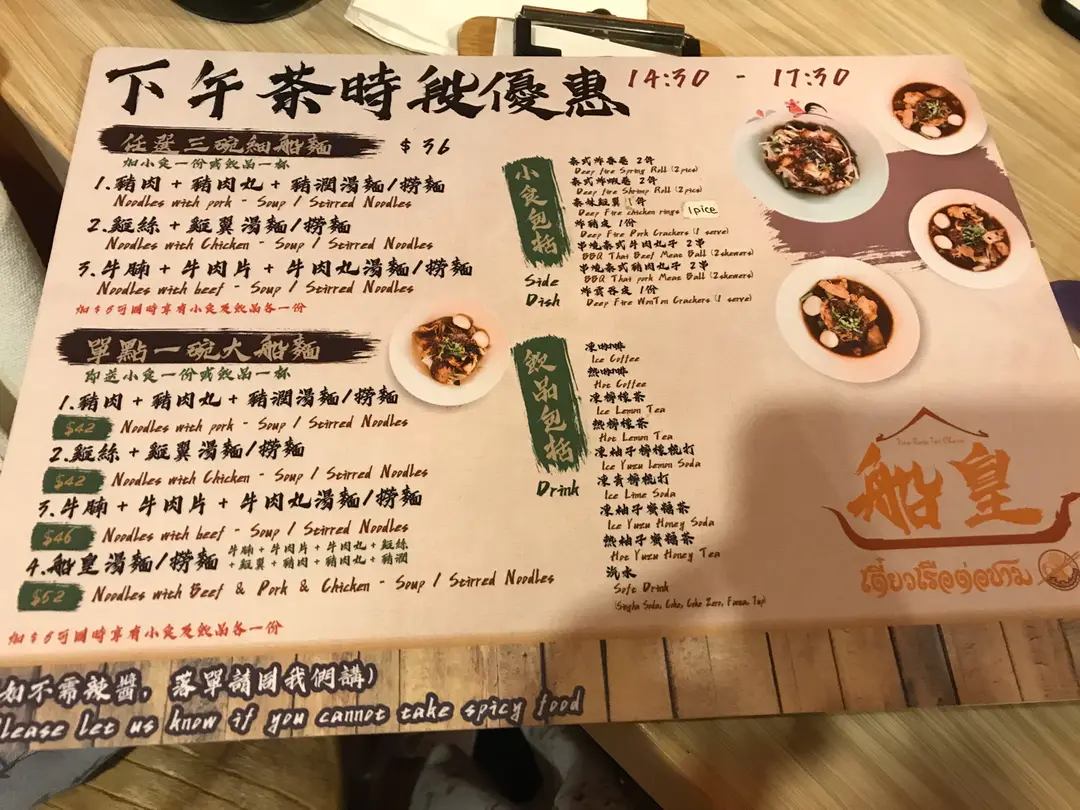 下午茶時段優惠 14:30 - 17:30
任選三碗細船麵 $36
加小食一份或飲品一杯
1.豬肉 + 豬肉丸 + 豬潤湯麵/撈麵
Noodles with pork - Soup / Stirred Noodles
2.雞絲 + 雞翼湯麵/撈麵
Noodles with Chicken - Soup / Stirred Noodles
3.牛腩 + 牛肉片 + 牛肉丸湯麵/撈麵
Noodles with beef - Soup / Stirred Noodles
加$6可同時享有小食及飲品各一份
單點一碗大船麵
即送小食一份或飲品一杯
1.豬肉 + 豬肉丸 + 豬潤湯麵/撈麵
$42 Noodles with pork - Soup / Stirred Noodles
2.雞絲 + 雞翼湯麵/撈麵
$42 Noodles with Chicken - Soup / Stirred Noodles
3.牛腩 + 牛肉片 + 牛肉丸湯麵/撈麵
$46 Noodles with beef - Soup / Stirred Noodles
4.船皇湯麵/撈麵
牛腩 + 牛肉片 + 牛肉丸 + 雞絲
+ 雞翼 + 豬肉 + 豬肉丸 + 豬潤
$52 Noodles with Beef & Pork & Chicken - Soup / Stirred Noodles
加$6可同時享有小食及飲品各一份
小食包括
Side
Dish
泰式炸春卷 2件
Deep fire Spring Roll (2pice)
泰式炸蝦卷 2件
Deep fire Shrimp Roll (2pice)
泰味雞翼 1件
Deep Fire chicken rings 1pice
炸豬皮 1份
Deep Fire Pork Crackers (1 serve)
串燒泰式牛肉丸子 2串
BBQ Thai Beef Meat Ball (2skewers)
串燒泰式豬肉丸子 2串
BBQ Thai pork Meat Ball (2skewers)
炸雲吞皮 1份
Deep Fire WonTon Crackers (1 serve)
飲品包括
Drink
凍咖啡
Ice Coffee
熱咖啡
Hot Coffee
凍檸檬茶
Ice Lemon Tea
熱檸檬茶
Hot Lemon Tea
凍柚子檸檬梳打
Ice Yuzu Lemon Soda
凍青檸梳打
Ice Lime Soda
凍柚子蜜糖茶
Ice Yuzu Honey Soda
熱柚子蜜糖茶
Hot Yuzu Honey Tea
汽水
Soft Drink
(Singha Soda, Coke, Coke Zero, Fanta, 7up)
船皇
如不需辣醬，落單請同我們講)
Please let us know if you cannot take spicy food